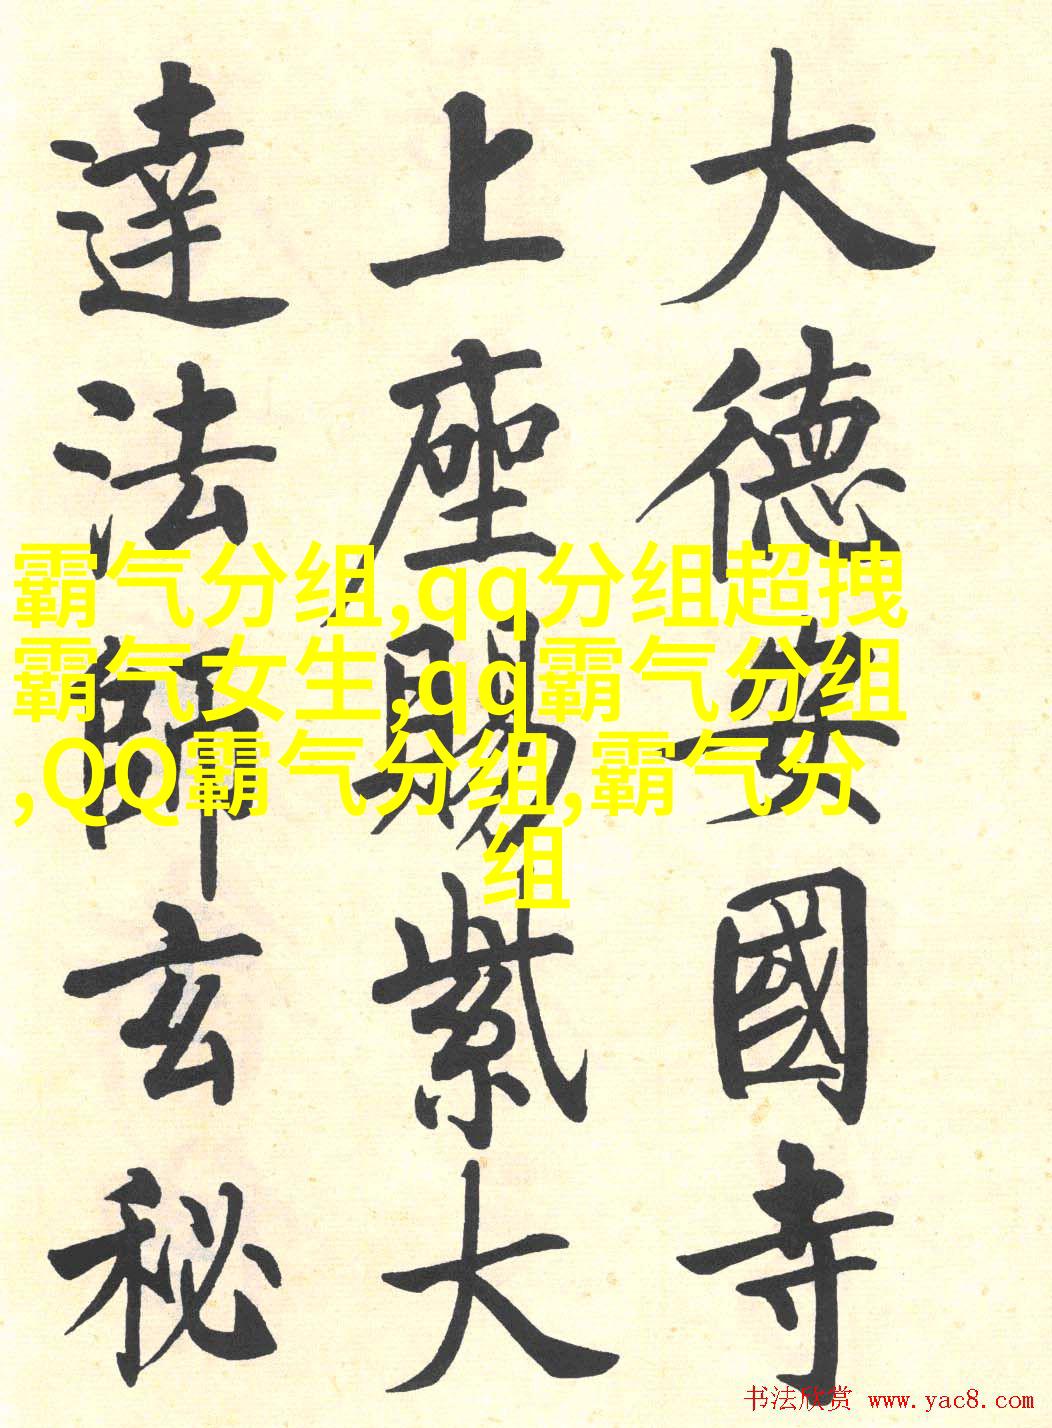 大德安國寺
上座賜紫大
達法師玄秘
霸气分组,qq分组超拽
霸气女生,qq霸气分组
,QQ霸气分组,霸气分
组
书法欣赏 www.yac8.com